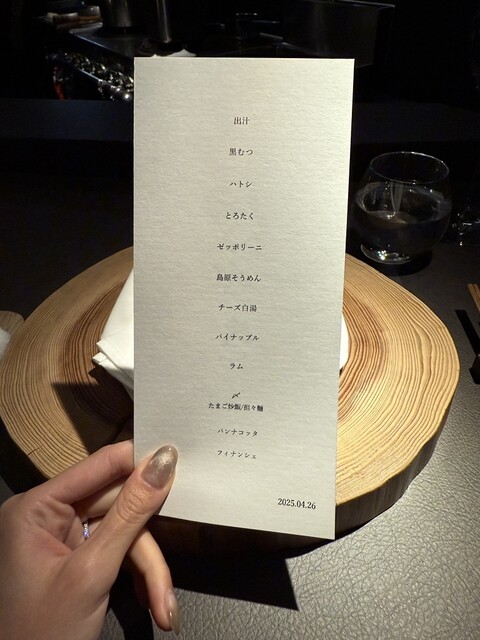 出汁
黒むつ
ハトシ
とろたく
ゼッポリーニ
島原そうめん
チーズ白湯
パイナップル
ラム
〆
たまご炒飯/担々麺
パンナコッタ
フィナンシェ
2025.04.26